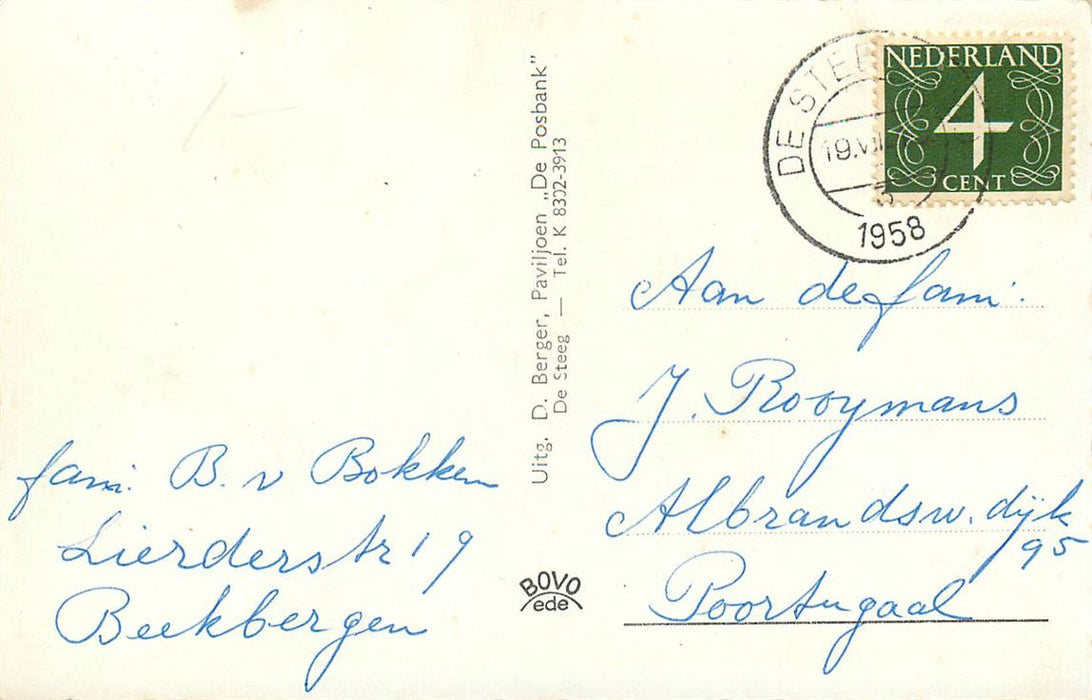 fam. B. v Bokkem
Lierderstr 19
Beekbergen
Uitg. D. Berger, Paviljoen „De Posbank”
De Steeg — Tel. K 8302-3913
BOVO
ede
DE STEEG
19.VIII
1958
NEDERLAND
4
CENT
Aan de fam.
J. Rooymans
Albrandsw. dijk
95
Poortugaal